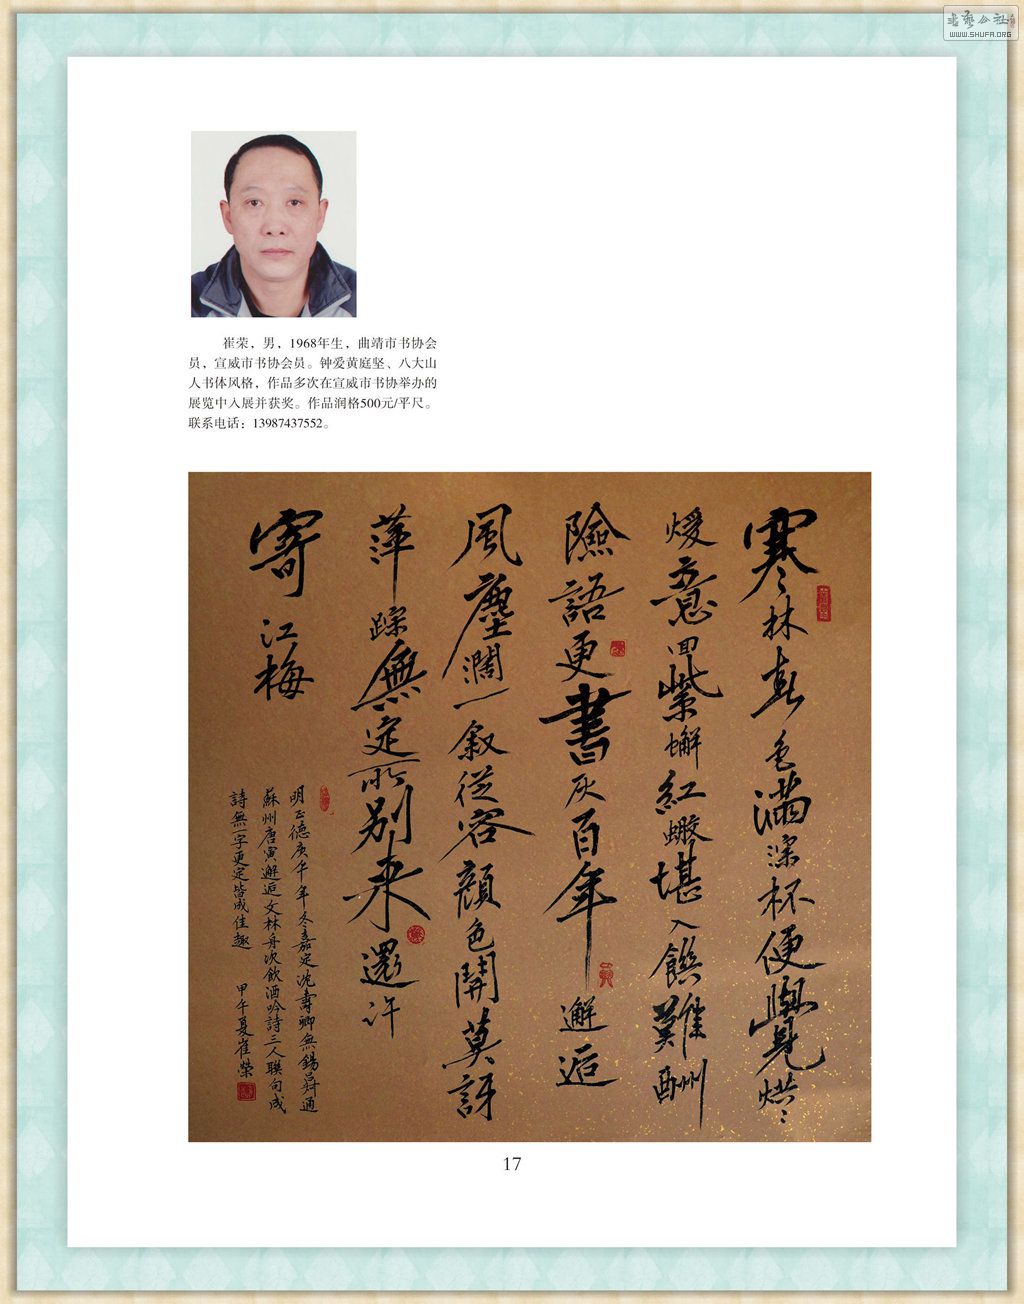 書藝公社
WWW.SHUFA.ORG
崔荣，男，1968年生，曲靖市书协会
员，宣威市书协会员。钟爱黄庭坚、八大山
人书体风格，作品多次在宣威市书协举办的
展览中入展并获奖。作品润格500元/平尺。
联系电话：13987437552。
寒林春色满深杯便與覺烘〻
煖意回紫蠏紅蝂堪入饌難酬
險語更書灰百年邂逅
風塵濶一叙從容顔色開莫訝
萍踪無定所别来還许
寄江梅
明正德庚午年冬嘉定沈壽卿無錫吕通
蘇州唐寅邂逅文林舟次飲酒吟詩三人聯句成
詩無一字更定皆成佳趣 甲午夏崔榮
17